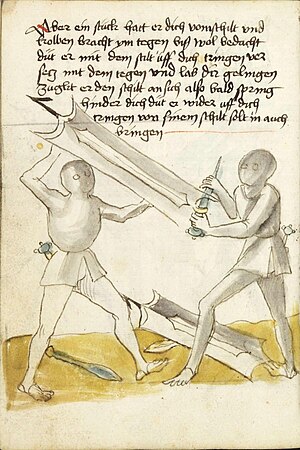 Aber ein stuck hatt er dich vom schilt vnd
kolben bracht ym tegen biss wol bedacht
düt er mit dem stilt vff dich tringen ver
secz mit dem tegen vnd lab dir gelingen
Zugkt er den schilt an sich also bald spring
hinder dich düt er wider uff dich
tringen von sinem schilt solt in auch
bringen